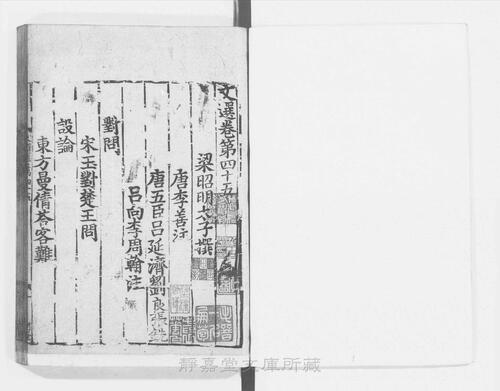 文選卷第四十五
梁昭明太子撰
唐李善注
唐五臣吕延濟劉良張銑
吕向李周翰注
對問
宋玉對楚王問
設論
東方曼倩荅客難
靜嘉堂文庫所藏